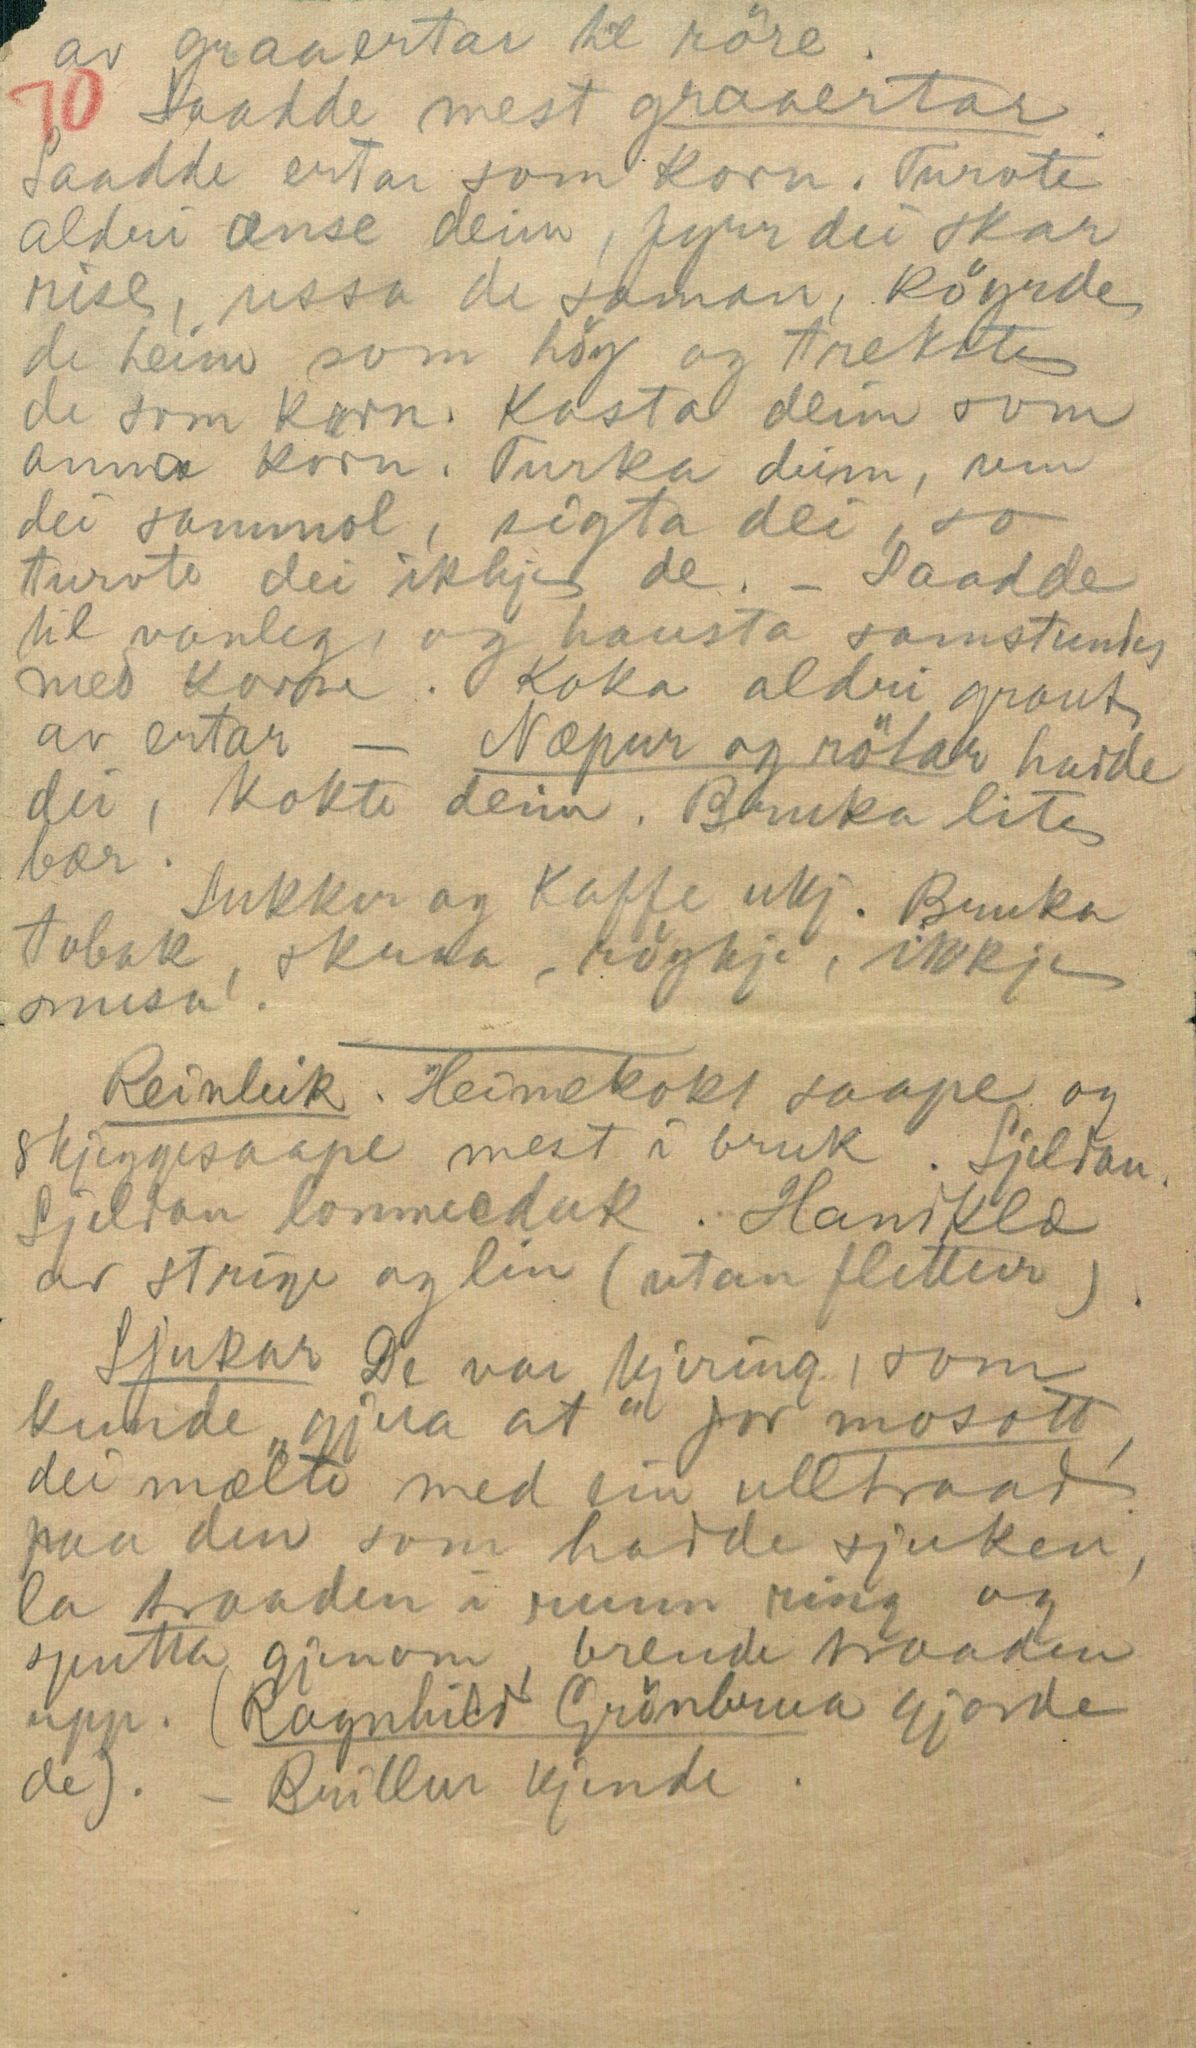 av graaertar til röre.
70 Saadde mest graaertar.
Saadde ertar som korn. Turvte
aldri ænse deim, fyrr dei skar
rise, ussa de saman, köyrde
de heim som höy og trekkte
de som korn. Kasta deim som
anna korn. Turka deim, um
dei sammol, sigta dei, so
turvte dei ikkje de. – Saadde
til vanleg, og hausta samstundes
med korne. Koka aldri graut
av ertar – Næpur og rötar hadde
dei, kokte deim. Bruka lite
bær.
Sukker og kaffe ikkj. Bruka
tobak, skraa, röykje, ikkje
snusa.
Reinleik. Heimekokt saape og
skjeggesaape mest i bruk. Sjeldan.
Sjeldan lommeduk. Handklæ
av strige og lin (utan flettur).
Sjukar De var kjering, som
kunde „gjera at" for mosott,
dei mælte med ein ulltraad
paa den som hadde sjuken,
la traaden i runn ring og
sputta gjenom, brende traaden
upp. (Ragnhild Grönbrua gjorde
de). – Brillur kjende.